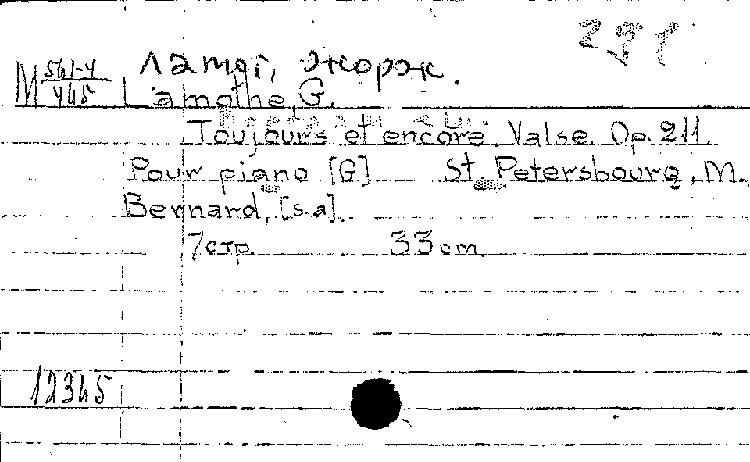 Ламот, Жорж.
М 561-4
465
Lamothe, G.
Toujours et encore. Valse. Op. 211.
Pour piano [G] St. Petersbourg, M.
Bernard, [s.a].
7 стр. 33 cm
12345